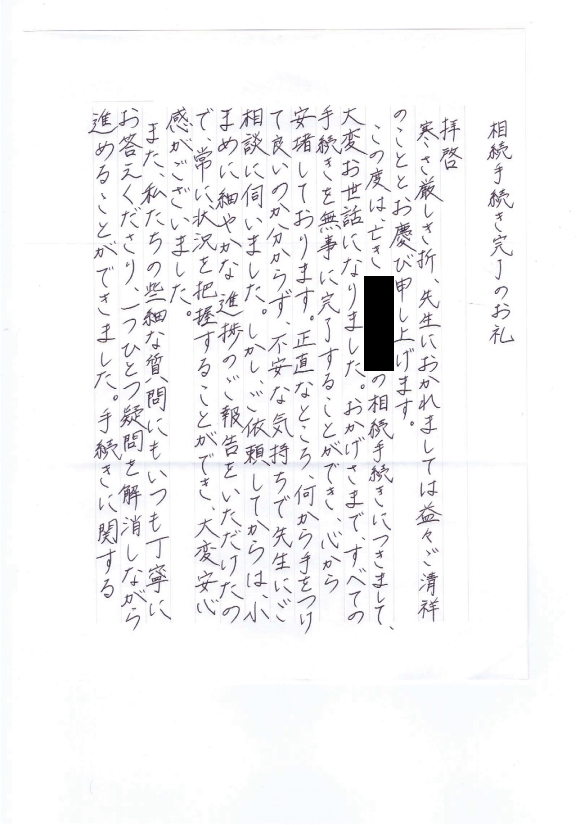 相続手続き完了のお礼
拝啓
寒さ厳しき折、先生におかれましては益々ご清祥
のこととお慶び申し上げます。
この度は、亡き の相続手続きにつきまして、
大変お世話になりました。おかげさまで、すべての
手続きを無事に完了することができ、心から
安堵しております。正直なところ、何から手をつけ
て良いのか分からず、不安な気持ちで先生にご
相談に伺いました。しかし、ご依頼してからは、小
まめに細やかな進捗のご報告をいただけたの
で、常に状況を把握することができ、大変安心
感がございました。
また、私たちの些細な質問にもいつも丁寧に
お答えくださり、一つひとつ疑問を解消しながら
進めることができました。手続きに関する